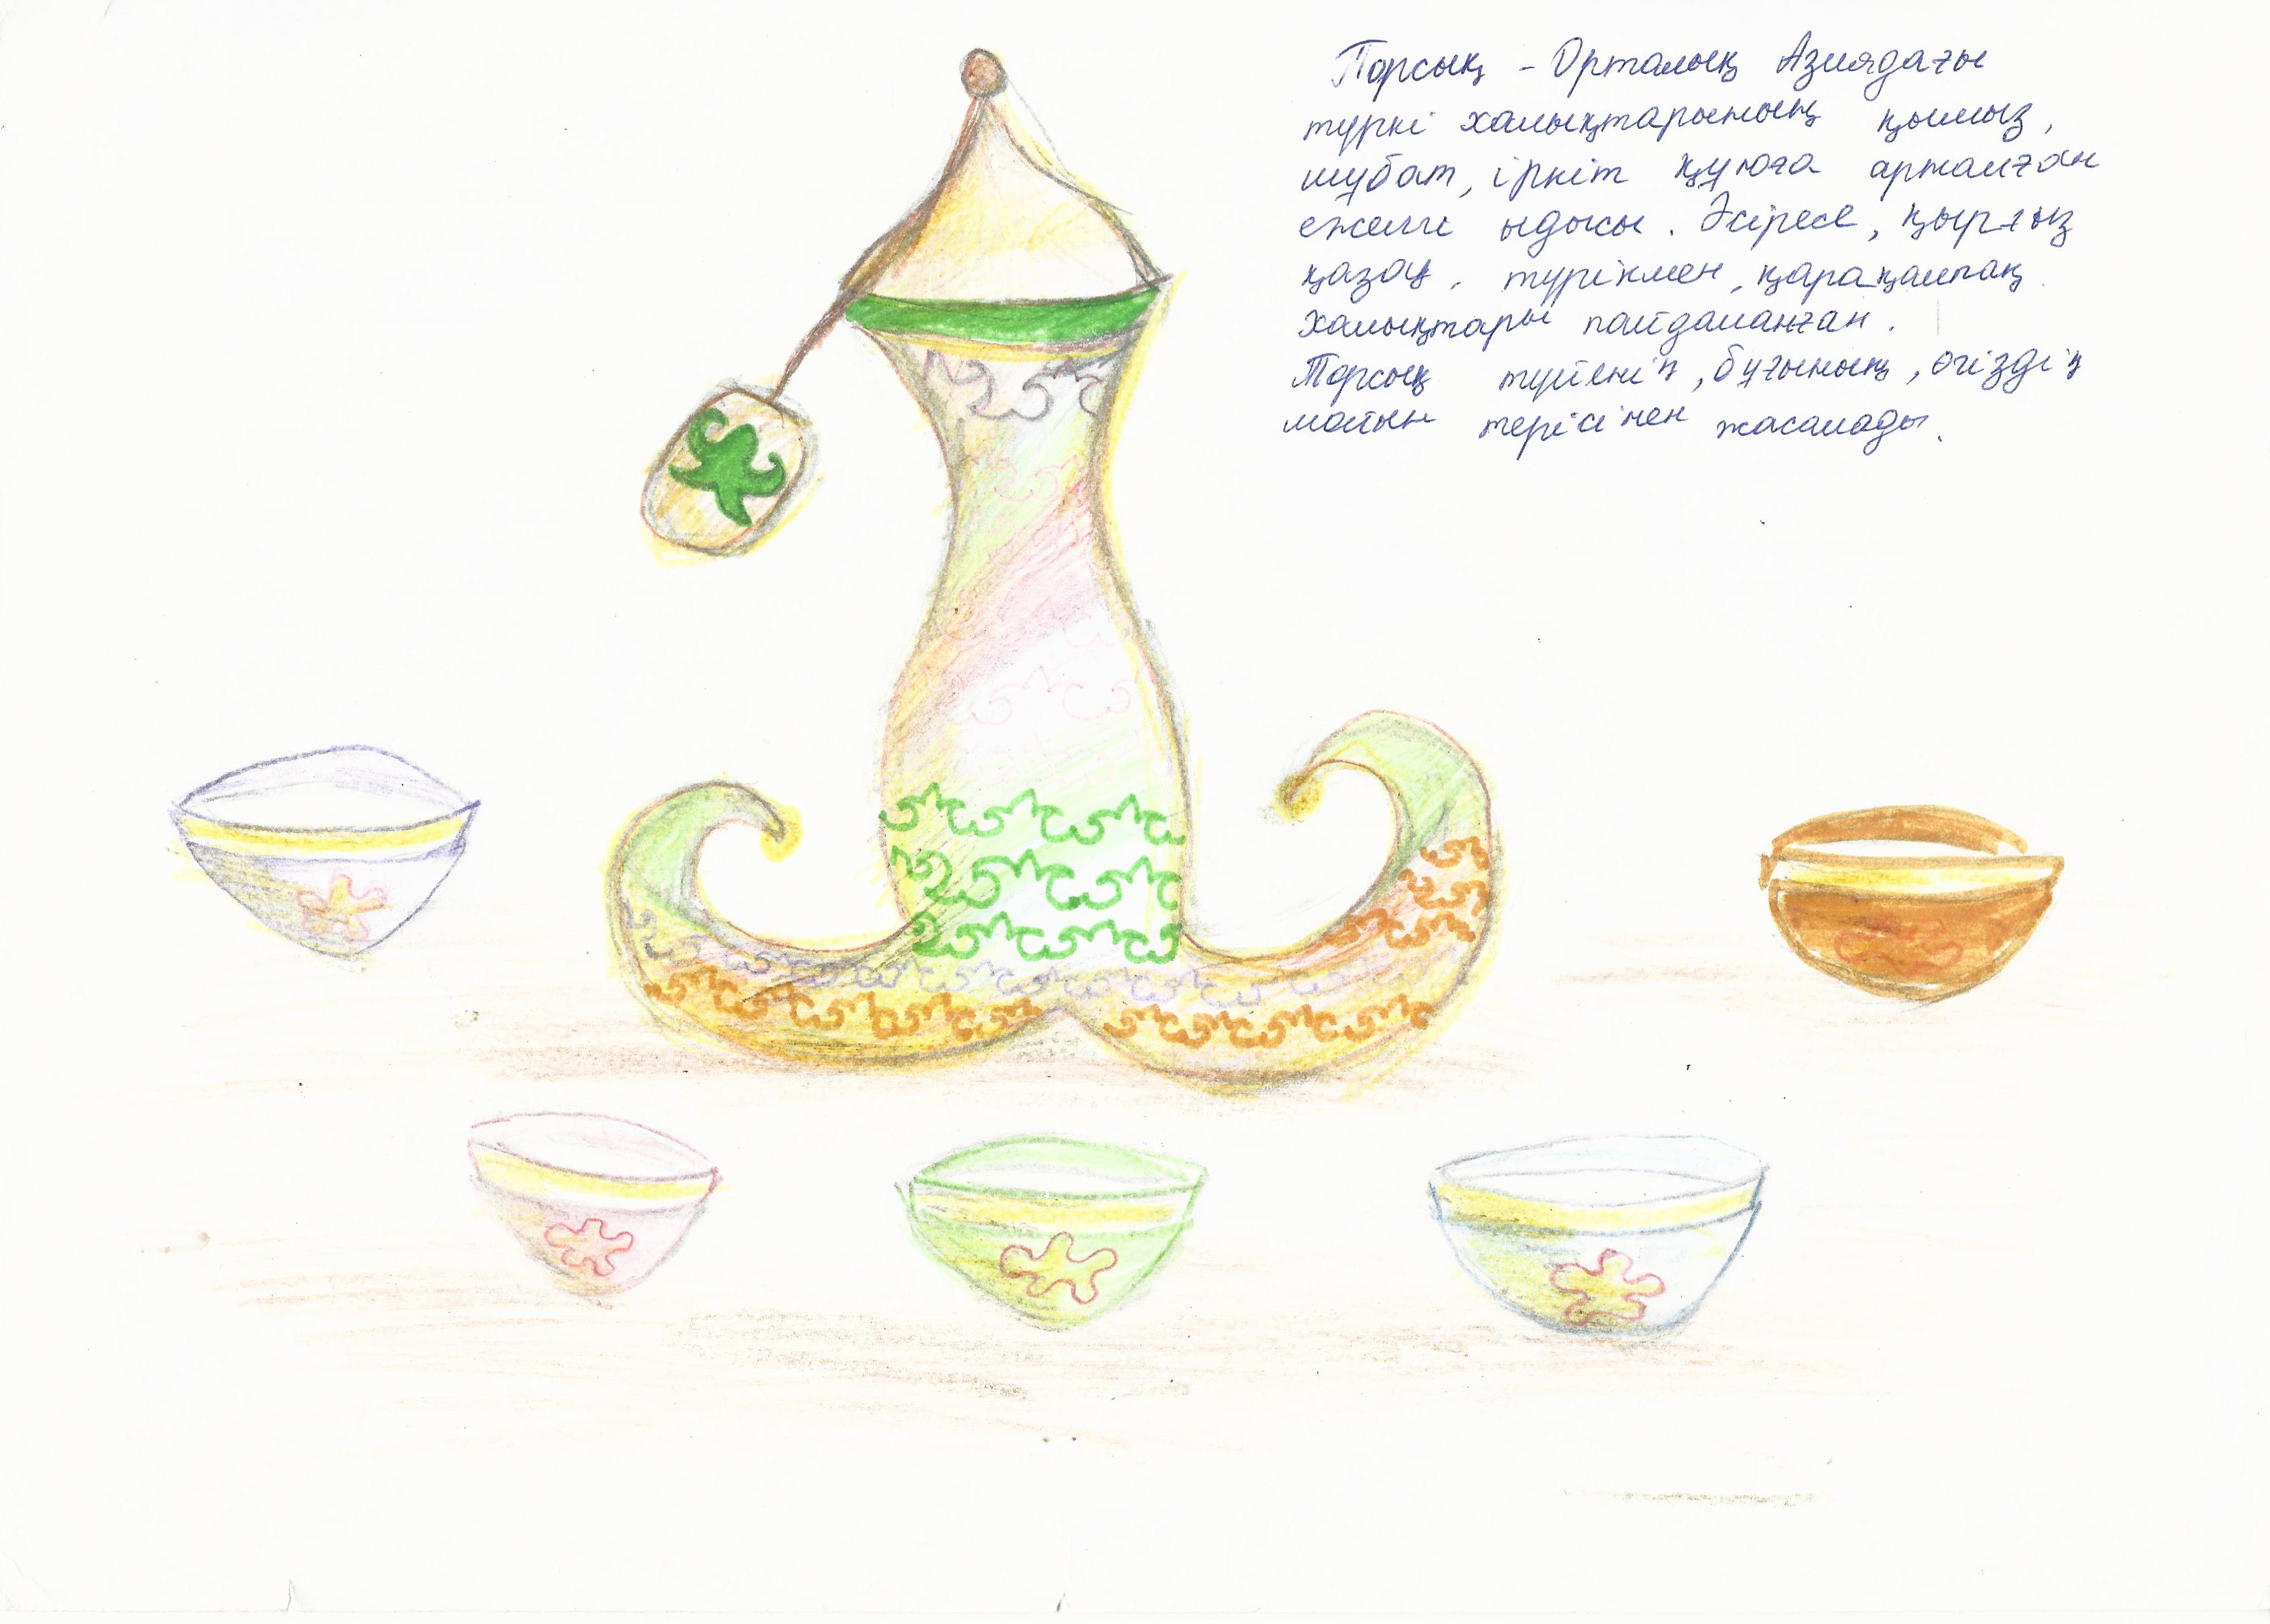 Торсық – Орталық Азиядағы
түркі халықтарының қымыз,
шубат, іркіт құюға арналған
ежелгі ыдысы. Әсіресе, қырғыз
қазақ, түрікмен, қарақалпақ
халықтары пайдаланған.
Торсық түйенің, бұғының, өгіздің
мойын терісінен жасалады.